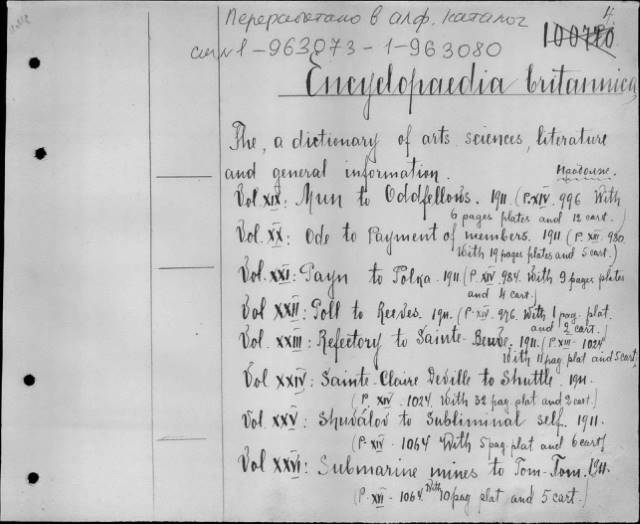 4.
Переработано в алф. каталог
см № 1-963073-1-963080
100780
Encyclopaedia britannica,
The, a dictionary of arts sciences, literature
and general information.
Vol XIX: Mun to Oddfellows. 1911. (P. XIV. 996 With
6 pages plates and 12 cart.)
Vol. XX: Ode to Payment of members. 1911 (P. XII. 980.
With 19 pages plates and 5 cart.)
Vol. XXI: Payn to Polka. 1911. (P. XIV 984. With 9 pages plates
and 4 cart.)
Vol XXII: Poll to Reeves. 1911. (P. XIV. 976. With 1 pag. plat.
and 2 cart.)
Vol. XXIII: Refectory to Sainte-Beuve. 1911. (P. XIII - 1024
With 11 pag. plat and 5 cart.
Vol XXIV: Sainte-Claire Deville to Shuttle. 1911.
(P. XIV. 1024. With 32 pag. plat and 2 cart.)
Vol. XXV: Shuválov to Subliminal self. 1911.
(P. XII - 1064 With 5 pag. plat and 6 cart)
Vol XXVI: Submarine mines to Tom-Tom. 1911.
(P. XII - 1064. With 10 pag plat and 5 cart.)